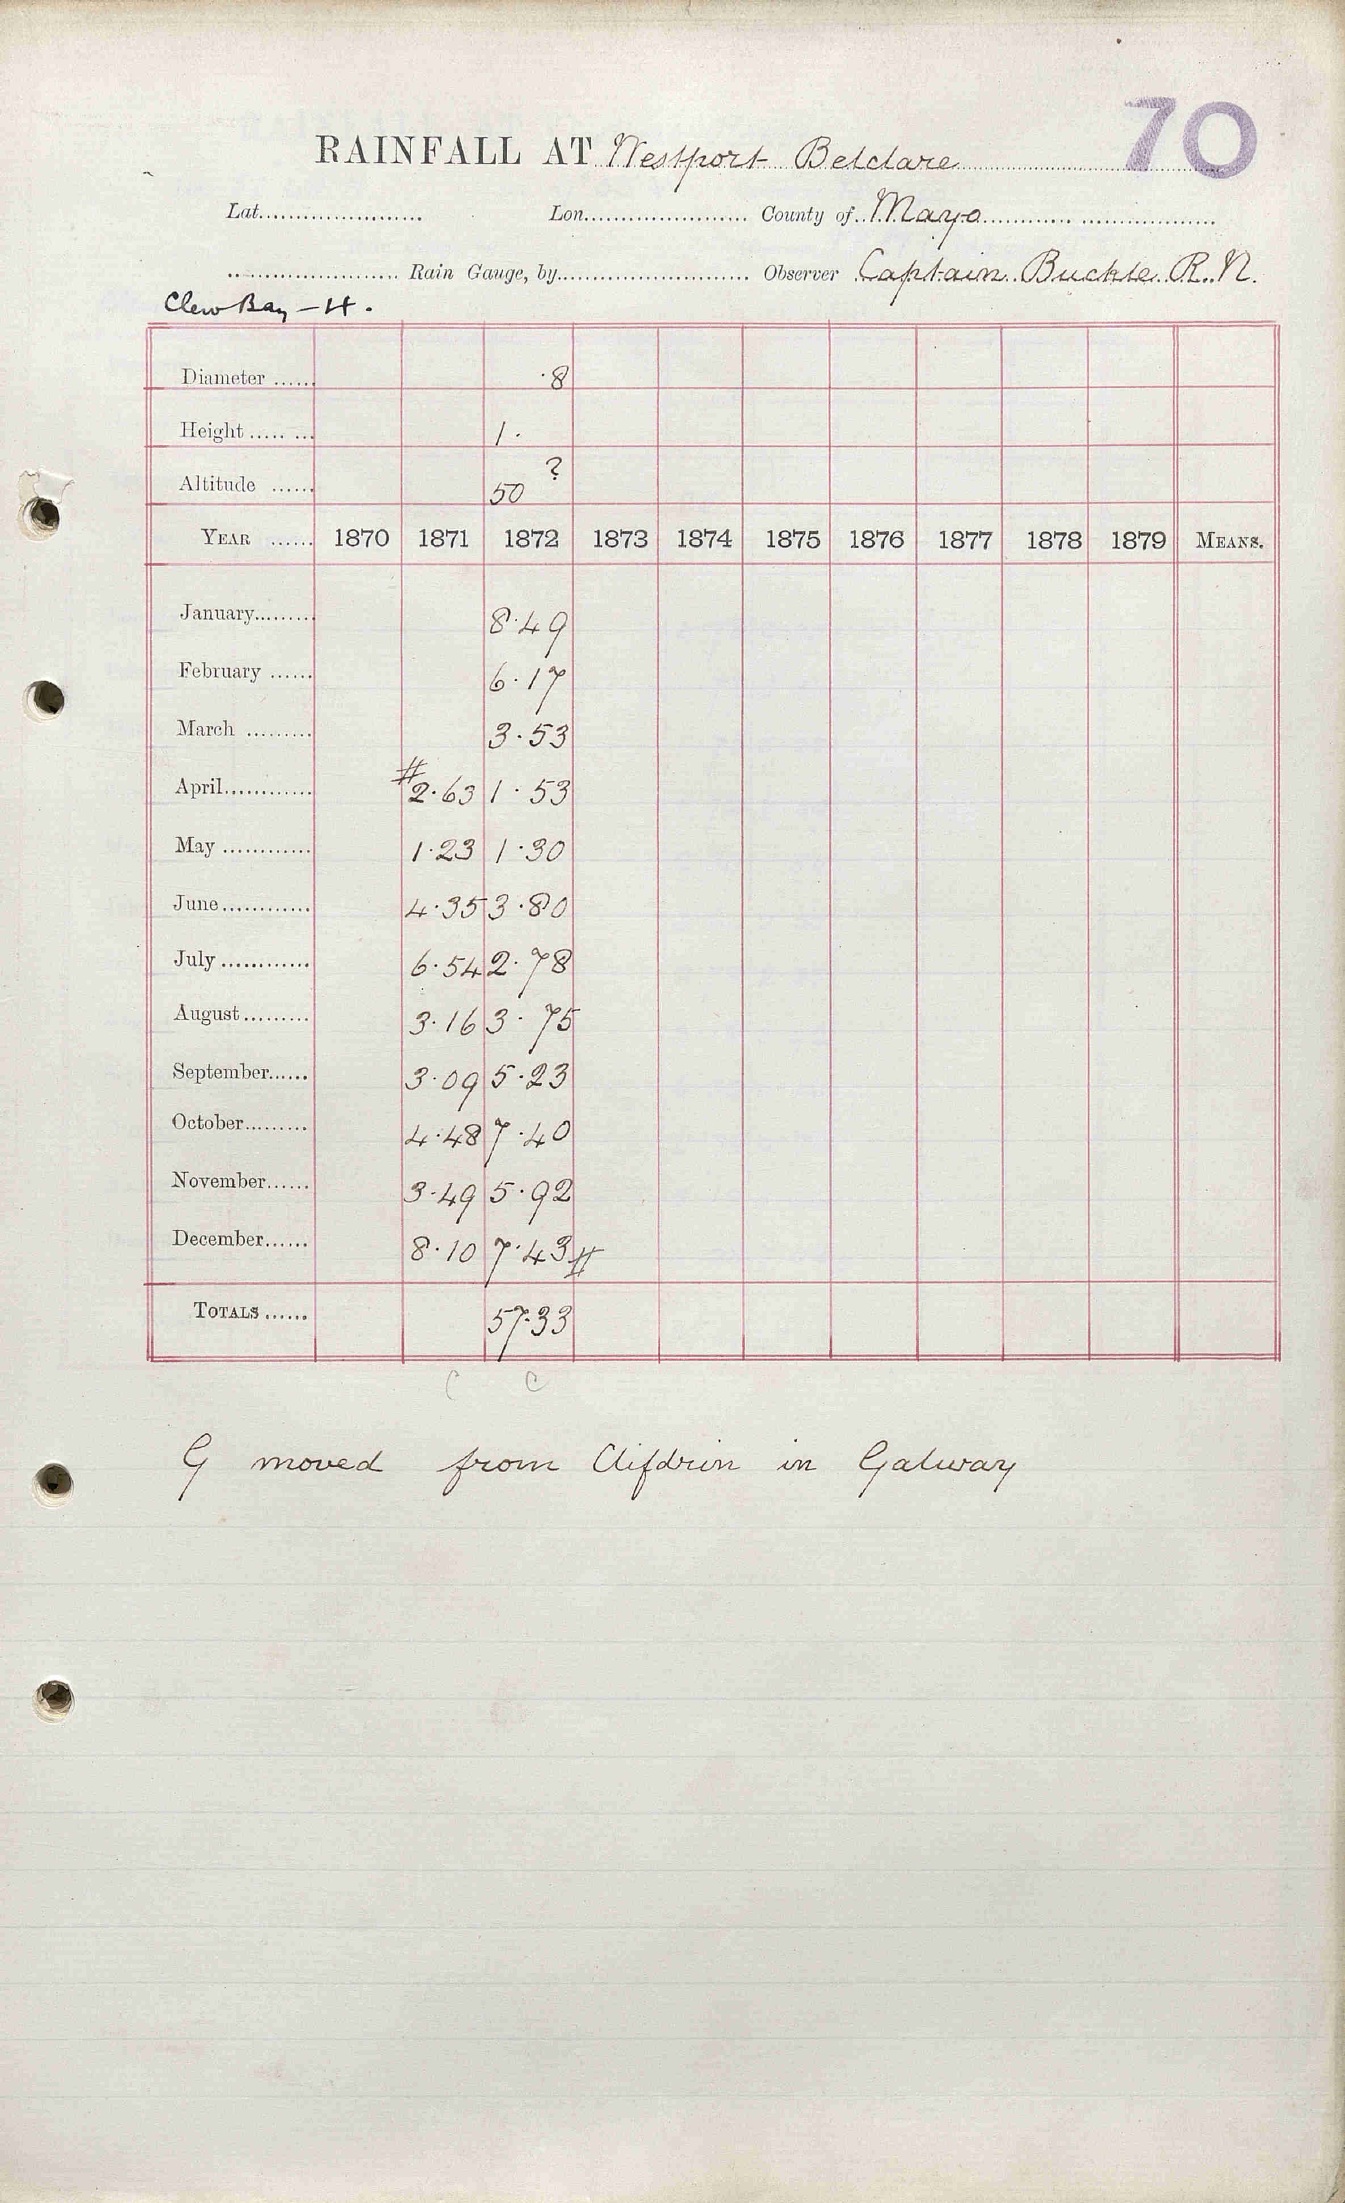 70
RAINFALL AT Westport Belclare
Lat. Lon. County of Mayo
Rain Gauge, by Observer Captain Buckle R.N.
Clew Bay - H.
Diameter ...... ·8
Height ..... ... 1.
Altitude ...... 50 ?
YEAR ...... 1870 1871 1872 1873 1874 1875 1876 1877 1878 1879 MEANS.
January......... 8.49
February ...... 6.17
March ......... 3.53
April............ #2.63 1.53
May ............ 1.23 1.30
June............ 4.35 3.80
July ............ 6.54 2.78
August......... 3.16 3.75
September...... 3.09 5.23
October......... 4.48 7.40
November...... 3.49 5.92
December...... 8.10 7.43 #
TOTALS ...... 57.33
C C
G moved from in Galway